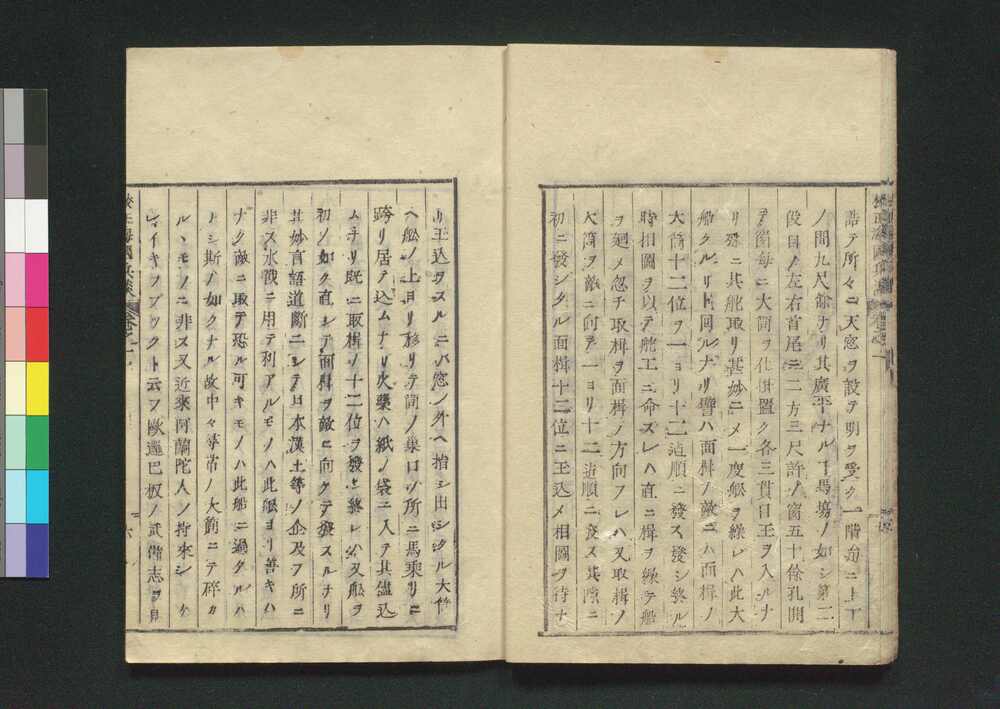 誥テ所々ニ天窓ヲ設テ明ヲ受ク一階每ニ上下
ノ間九尺餘ナリ其廣平ナルヿ馬塲ノ如シ第二
段目ノ左右首尾ニ二方三尺許ノ窗五十餘孔開
テ窗每ニ大筒ヲ仕掛置ク各三貫目玉ヲ入ルナ
リ殊ニ其舵取リ甚妙ニメ一度舵ヲ繰レハ此大
船クルリト回ルナリ譬ハ面楫ノ敵ニハ面楫ノ
大筒十二位ヲ一ヨリ十二迠順ニ發ス發シ終ル
時相圖ヲ以テ舵工ニ命ズレハ直ニ楫ヲ繰テ船
ヲ廻メ忽チ取楫ヲ面楫ノ方向フレハ又取楫ノ
大筒ヲ敵ニ向テ一ヨリ十二迠順ニ發ス其隙ニ
初ニ發シタル面楫十二位ニ玉込メ相圖ヲ待ナ
リ玉込ヲスルニハ窓ノ外ヘ指シ出シタル大筒
ヘ船ノ上ヨリ移リテ筒ノ巢口ノ所ニ馬乘リニ
跨リ居テ込ムナリ火藥ハ紙ノ袋ニ入テ其儘込
ムナリ既ニ取楫ノ十二位ヲ發シ終レハ又船ヲ
初ノ如ク直シテ面楫ヲ敵ニ向ケテ發スルナリ
其妙言語道斷ニシテ日本漢土等ノ企及フ所ニ
非ス水戰ニ用テ利アルモノハ此船ヨリ善キハ
ナク敵ニ取テ恐ル可キモノハ此船ニ過タルハ
ナシ斯ノ如クナル故中々尋常ノ大筒ニテ碎カ
ルヽモノニ非ス又近來阿蘭陀人ノ持來シ
レイキフブックト云フ歐邏巴板ノ武備志ヲ見
校正海國兵談 卷之一 六